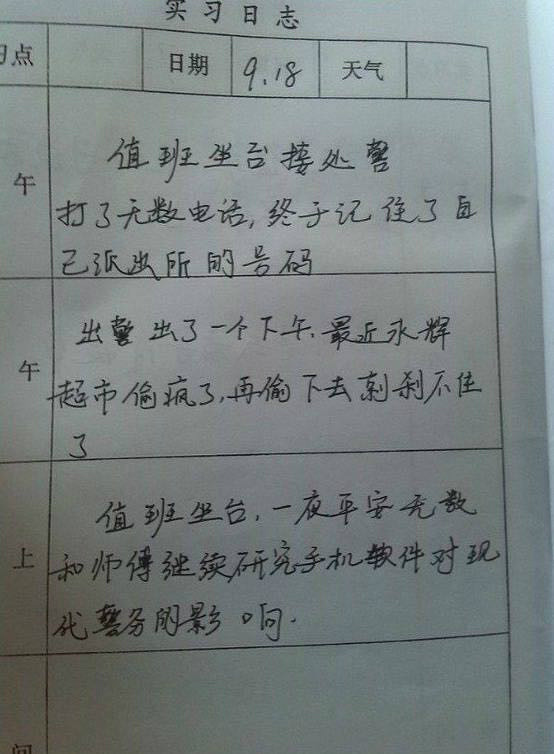 实习日志
习点 日期 9.18 天气
午
值班坐台接处警
打了无数电话,终于记住了自
己派出所的号码
午
出警出了一个下午.最近永辉
超市偷疯了,再偷下去刹不住
了
上
值班坐台,一夜平安无数
和师傅继续研究手机软件对现
代警务的影响.
间